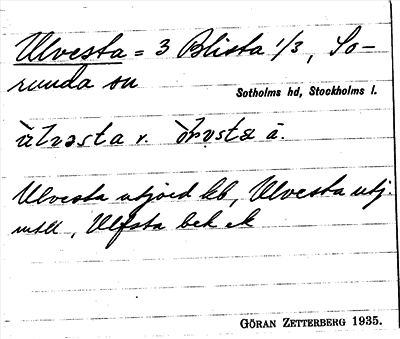 Ulvesta = 3 Blista 1/3, So-
runda sn
Sotholms hd, Stockholms l.
ùlvəsta v. 
Ulvesta utjord kb, Ulvesta utj.
mtll, Ulfsta bek ek
GÖRAN ZETTERBERG 1935.